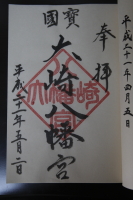 平成二十一年四月五日
奉拝
國寶
大崎八幡宮
平成二十一年五月二日